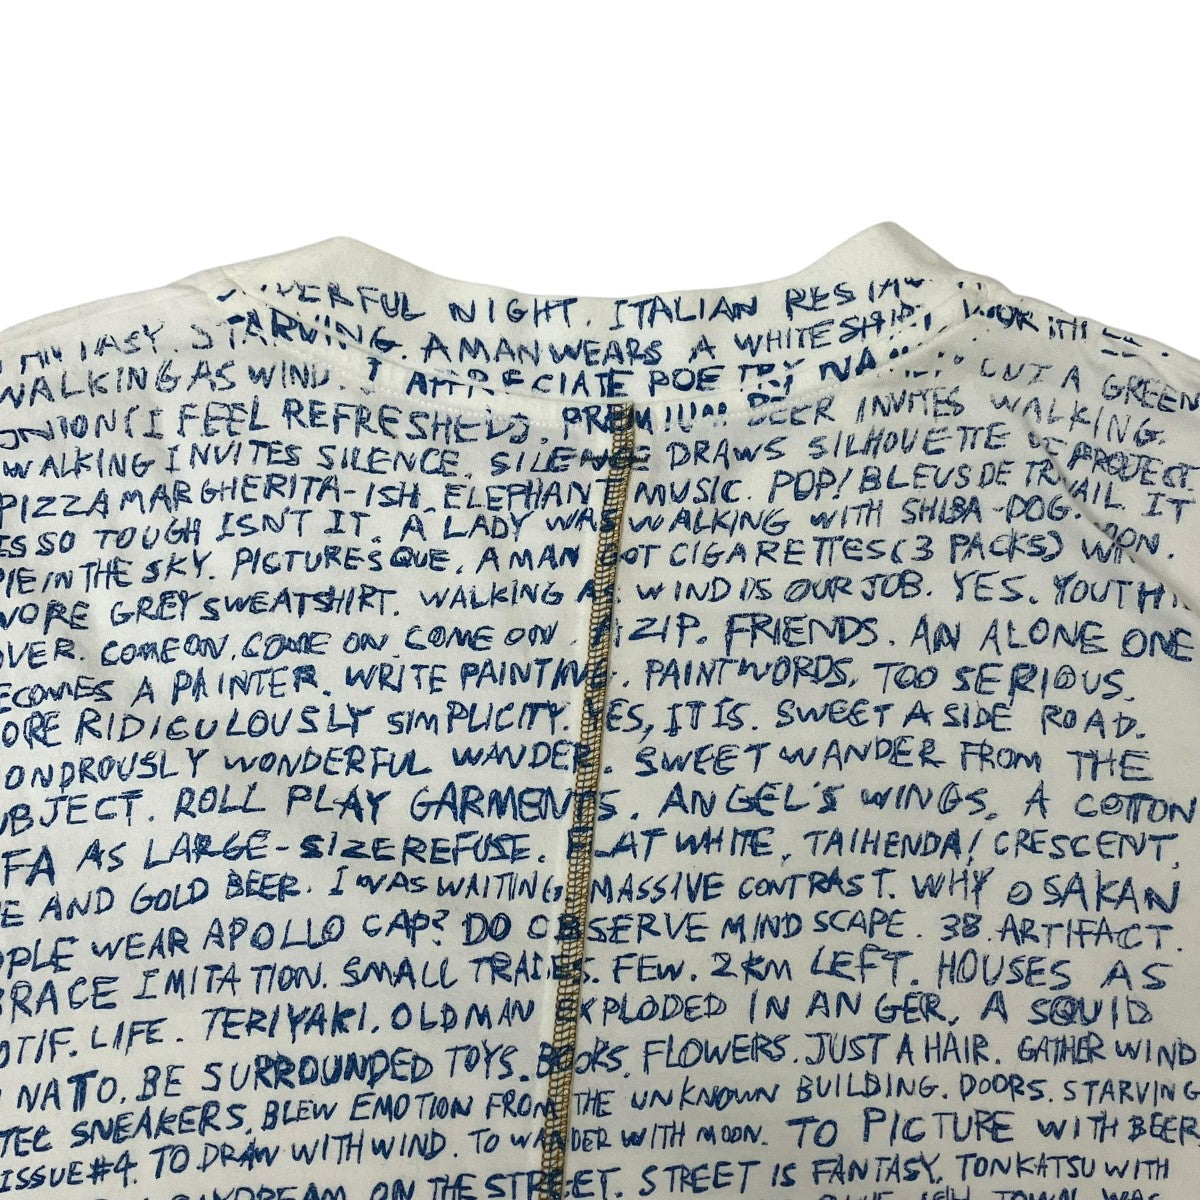 DERFUL NIGHT. ITALIAN
STARVING. A MAN WEARS A WHITE SHIRT
WALKING AS WIND. I APPRECIATE POETRY CUT A GREEN
UNION(I FEEL REFRESHED). PREMIUM BEER INVITES WALKING.
WALKING INVITES SILENCE. SILENCE DRAWS SILHOUETTE OF PROJECT
PIZZA MARGHERITA-ISH. ELEPHANT MUSIC. POP! BLEUS DE TRAVAIL. IT
IS SO TOUGH ISN'T IT. A LADY WAS WALKING WITH SHIBA-DOG.
PIE IN THE SKY. PICTURESQUE. A MAN GOT CIGARETTES (3 PACKS)
WORE GREY SWEATSHIRT. WALKING AS WIND IS OUR JOB. YES. YOUTH
OVER. COME ON. COME ON. COME ON. A ZIP. FRIENDS. AN ALONE ONE
ECOMES A PAINTER. WRITE PAINTING. PAINT WORDS. TOO SERIOUS.
ORE RIDICULOUSLY SIMPLICITY. YES, IT IS. SWEET A SIDE ROAD.
ONDROUSLY WONDERFUL WANDER. SWEET WANDER FROM THE
UBJECT. ROLL PLAY GARMENTS. ANGEL'S WINGS. A COTTON
FA AS LARGE-SIZE REFUSE. FLAT WHITE. TAIHENDA! CRESCENT.
E AND GOLD BEER. I WAS WAITING MASSIVE CONTRAST. WHY OSAKAN
OPLE WEAR APOLLO CAP? DO OBSERVE MINDSCAPE. 38. ARTIFACT.
RACE IMITATION. SMALL TRADES. FEW. 2KM LEFT. HOUSES AS
OTIF. LIFE. TERIYAKI. OLD MAN EXPLODED IN ANGER. A SQUID
NATO. BE SURROUNDED TOYS. BOOKS. FLOWERS. JUST A HAIR. GATHER WIND
TEC SNEAKERS. BLEW EMOTION FROM THE UNKNOWN BUILDING. DOORS. STARVING
ISSUE#4. TO DRAW WITH WIND. TO WANDER WITH MOON. TO PICTURE WITH BEER
DAYDREAM ON THE STREET. STREET IS FANTASY. TONKATSU WITH